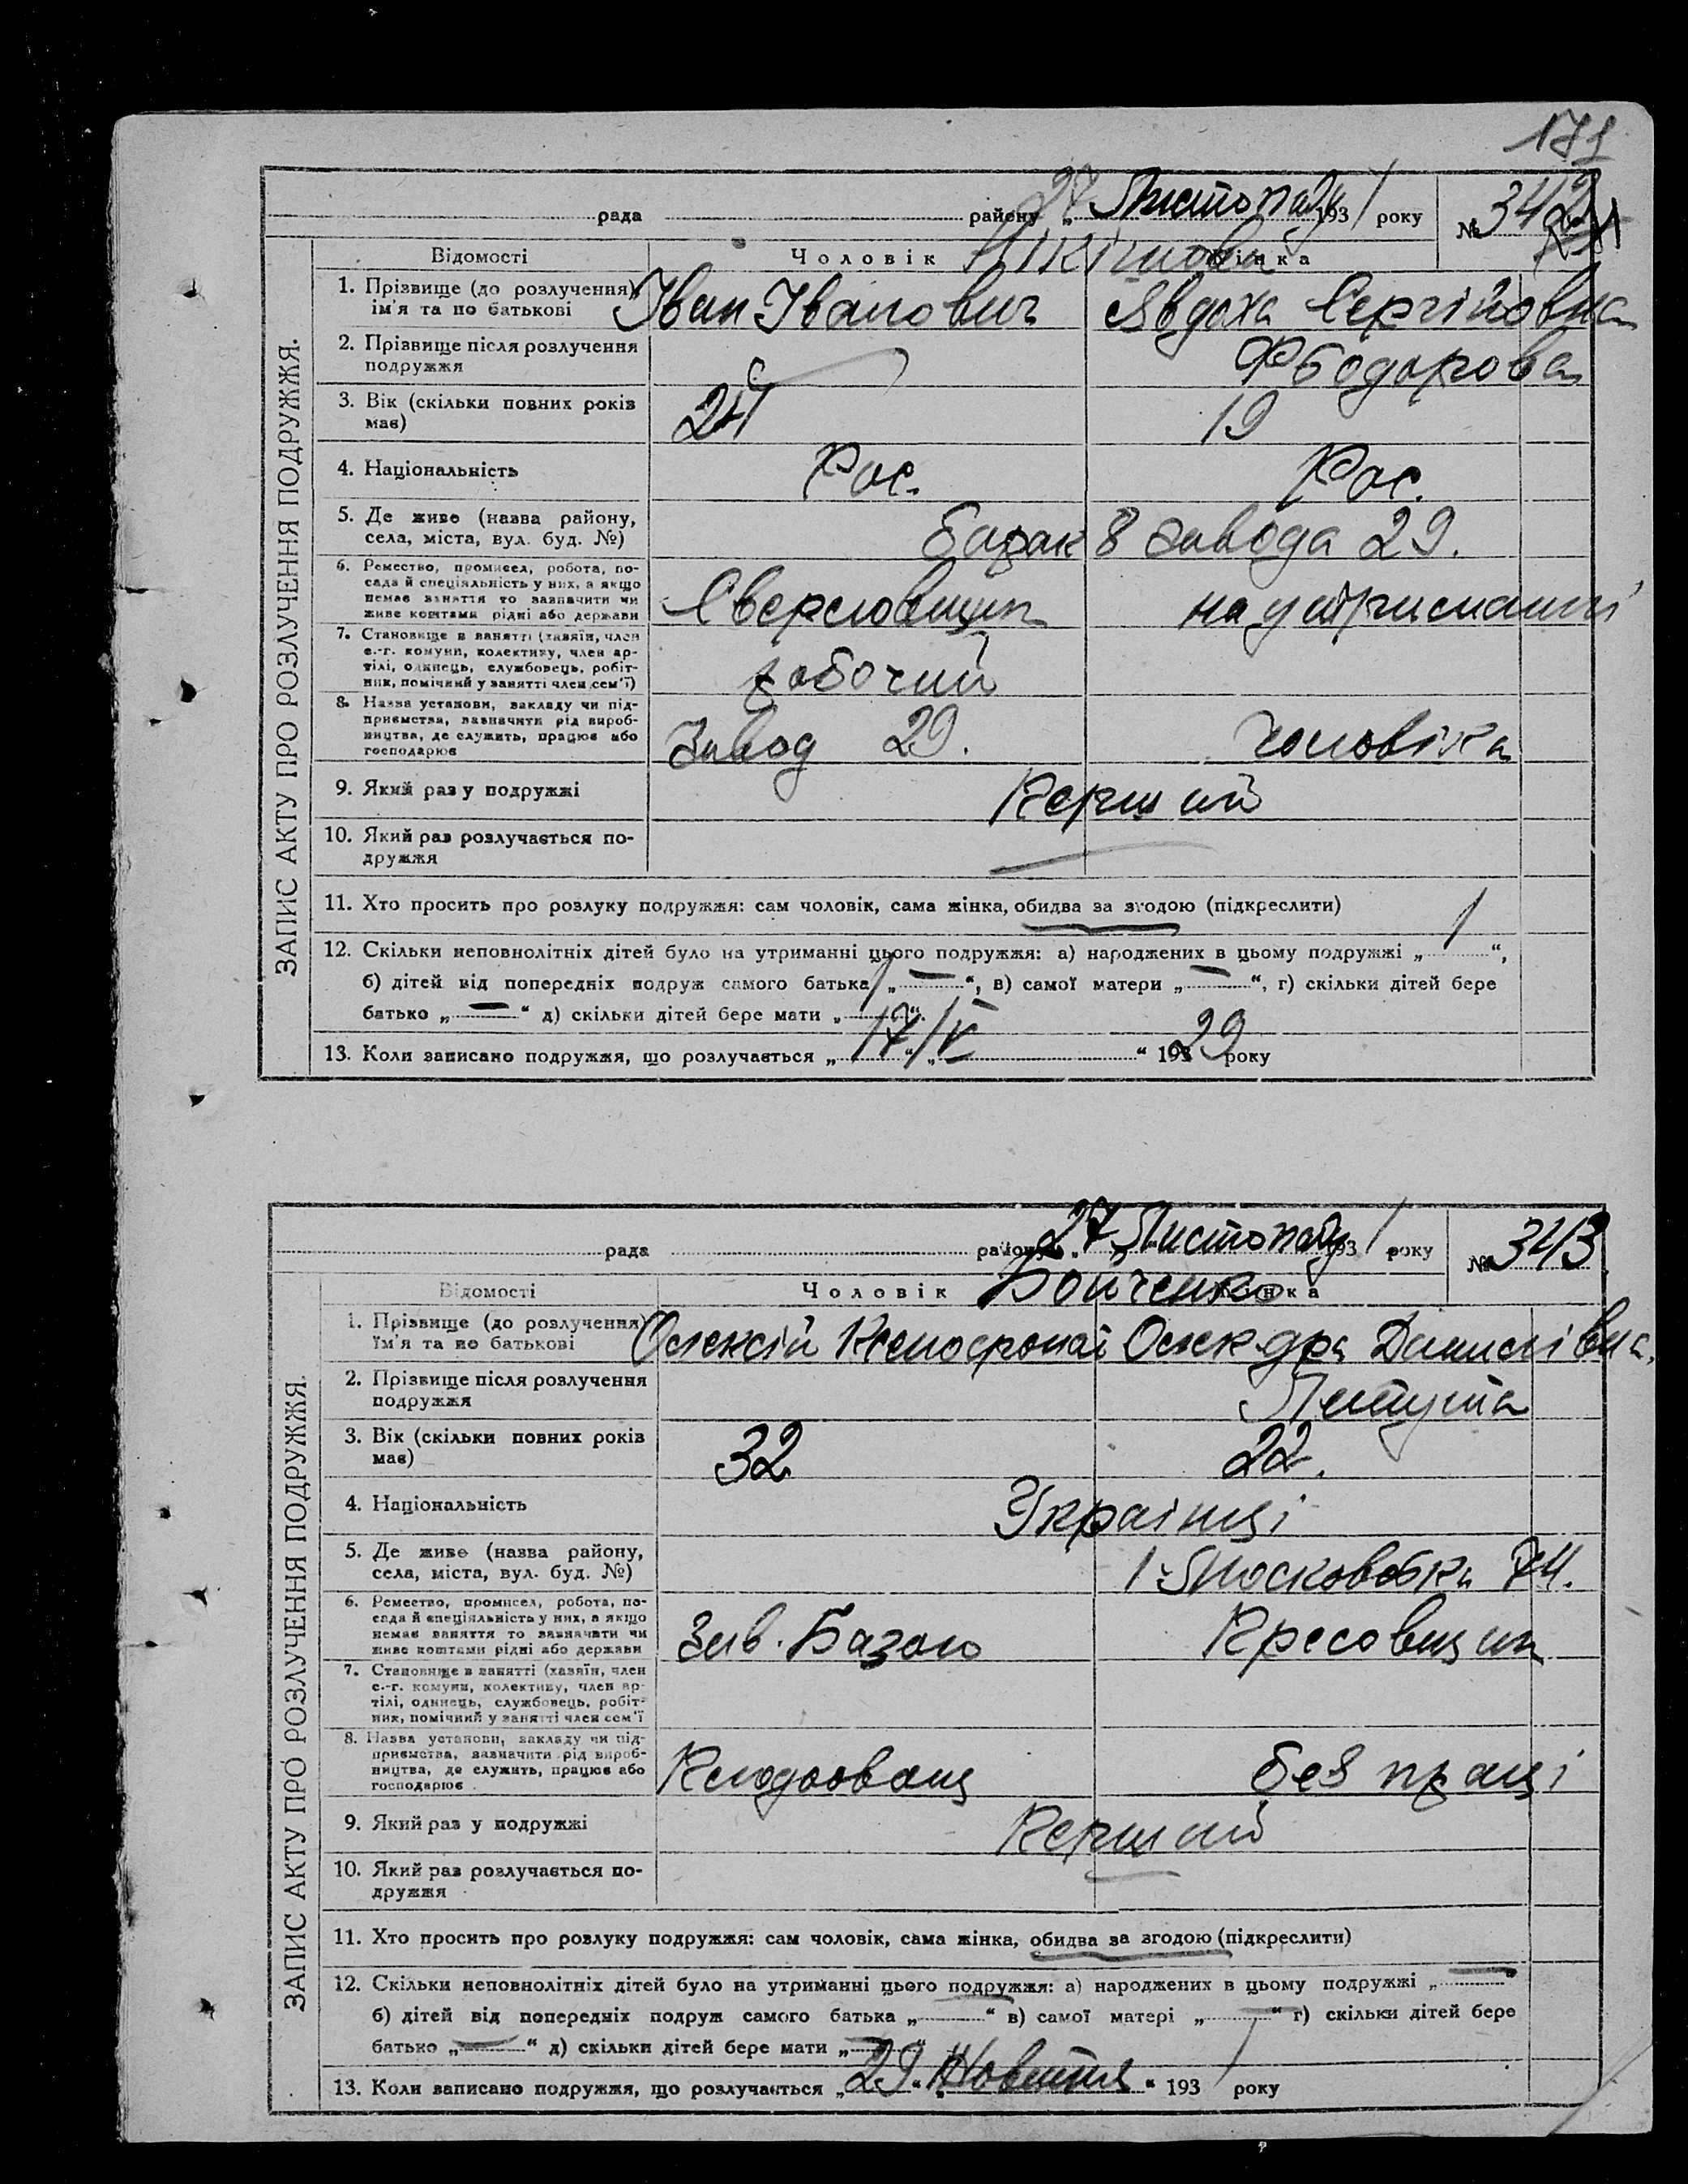 171
рада району „27 Листопаду 1931 року № 342
Відомості Чоловік Жінка
Нікітова
1. Прізвище (до розлучення) ім'я та по батькові Іван Іванович Явдоха Сергіївна
2. Прізвище після розлучення подружжя Федорова
3. Вік (скільки повних років має) 24 19
4. Національність Рос. Рос.
5. Де живе (назва району, села, міста, вул. буд. №) барак 8 завода 29.
6. Ремество, промисел, робота, посада й спеціяльність у них, а якщо немає заняття то зазначити чи живе коштами рідні або держави Сверловщик на утриманні
7. Становище в занятті (хазяїн, член с.-г. комуни, колективу, член артілі, одинець, службовець, робітник, помічний у занятті член сем'ї) робочий
8. Назва установи, закладу чи підприємства, зазначити рід виробництва, де служить, працює або господарює Завод 29. чоловіка
9. Який раз у подружжі Перший
10. Який раз розлучається подружжя
11. Хто просить про розлуку подружжя: сам чоловік, сама жінка, обидва за згодою (підкреслити)
12. Скільки неповнолітніх дітей було на утриманні цього подружжя: а) народжених в цьому подружжі „ 1 “,
б) дітей від попередніх подруж самого батька „ — “, в) самої матери „ — “, г) скільки дітей бере
батько „ — “ д) скільки дітей бере мати „ 1 “.
13. Коли записано подружжя, що розлучається „ 17 “ „ IV “ 1929 року
ЗАПИС АКТУ ПРО РОЗЛУЧЕННЯ ПОДРУЖЖЯ.
рада району „27 Листопаду 1931 року № 343
Відомості Чоловік Жінка
Бойченко
1. Прізвище (до розлучення) ім'я та по батькові Олексій Олександра Данилівна.
2. Прізвище після розлучення подружжя
3. Вік (скільки повних років має) 32 22.
4. Національність Українці
5. Де живе (назва району, села, міста, вул. буд. №) 74.
6. Ремество, промисел, робота, посада й спеціяльність у них, а якщо немає заняття то зазначати чи живе коштами рідні або держави Зав. Базою Пресовщик
7. Становище в занятті (хазяїн, член с.-г. комуни, колективу, член артілі, одинець, службовець, робітник, помічний у занятті член сем'ї
8. Назва установи, закладу чи підприємства, зазначити рід виробництва, де служить, працює або господарює Плодоовощ без праці
9. Який раз у подружжі Перший
10. Який раз розлучається подружжя
11. Хто просить про розлуку подружжя: сам чоловік, сама жінка, обидва за згодою (підкреслити)
12. Скільки неповнолітніх дітей було на утриманні цього подружжя: а) народжених в цьому подружжі „ — “
б) дітей від попередніх подруж самого батька „ “ в) самої матері „ — “ г) скільки дітей бере
батько „ — “ д) скільки дітей бере мати „ — “
13. Коли записано подружжя, що розлучається „ 29 “ „ Жовтня “ 1931 року
ЗАПИС АКТУ ПРО РОЗЛУЧЕННЯ ПОДРУЖЖЯ.